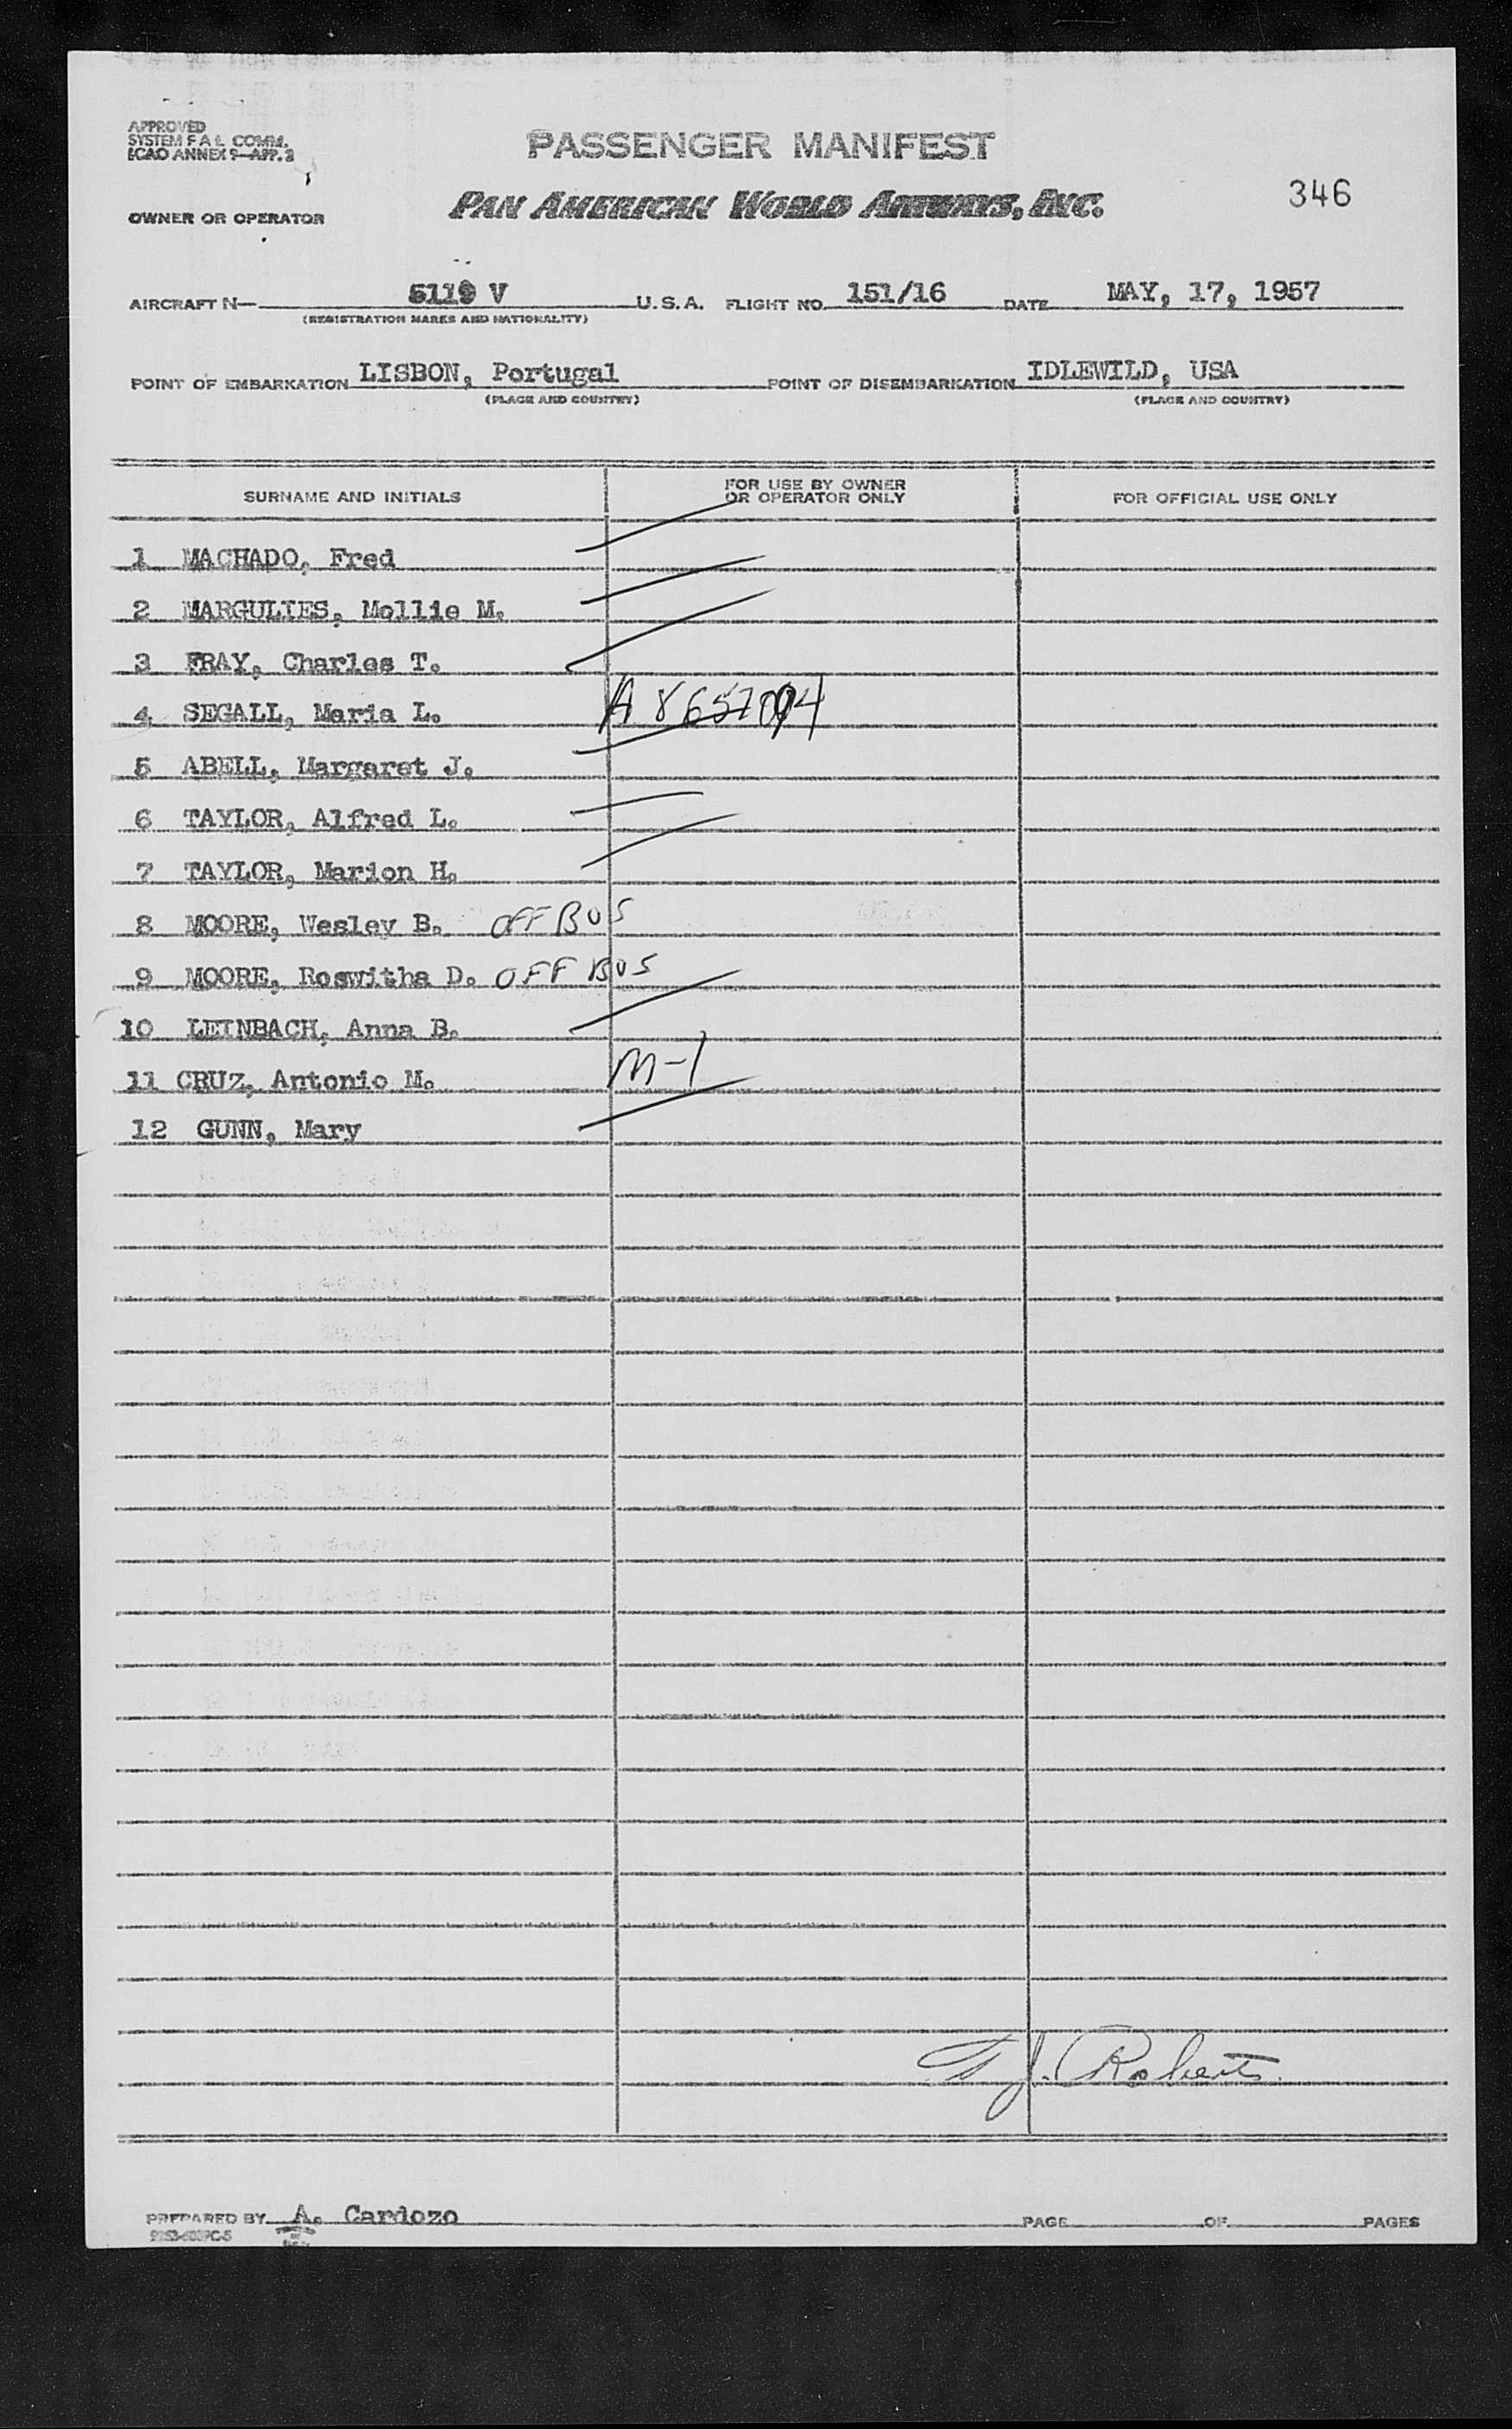 APPROVED
SYSTEM F A L COMM.
ICAO ANNEX 9—APP. 2
PASSENGER MANIFEST
OWNER OR OPERATOR PAN AMERICAN WORLD AIRWAYS, INC. 346
AIRCRAFT N— 5119 V U. S. A. FLIGHT NO. 151/16 DATE MAY, 17, 1957
(REGISTRATION MARKS AND NATIONALITY)
POINT OF EMBARKATION LISBON, Portugal POINT OF DISEMBARKATION IDLEWILD, USA
(PLACE AND COUNTRY) (PLACE AND COUNTRY)
SURNAME AND INITIALS FOR USE BY OWNER OR OPERATOR ONLY FOR OFFICIAL USE ONLY
1 MACHADO, Fred
2 MARGULIES, Mollie M.
3 FRAY, Charles T.
4 SEGALL, Maria L. A 8657094
5 ABELL, Margaret J.
6 TAYLOR, Alfred L.
7 TAYLOR, Marion H.
8 MOORE, Wesley B. OFF BUS
9 MOORE, Roswitha D. OFF BUS
10 LEINBACH, Anna B.
11 CRUZ, Antonio M. M-1
12 GUNN, Mary
J. Roberts
PREPARED BY A. Cardozo PAGE OF PAGES